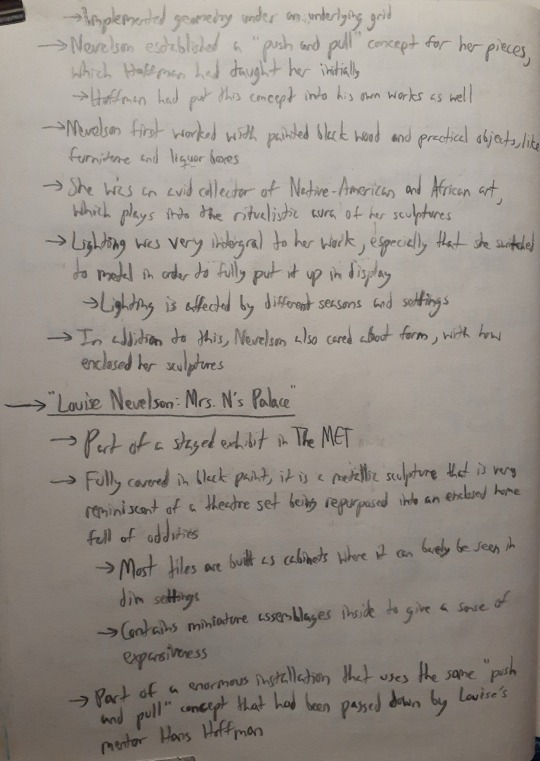 → Implemented geometry under an underlying grid
→ Nevelson established a "push and pull" concept for her pieces,
which Hoffman had taught her initially
→ Hoffman had put this concept into his own works as well
→ Nevelson first worked with painted black wood and practical objects, like
furniture and liquor boxes
→ She was an avid collector of Native-American and African art,
which plays into the ritualistic aura of her sculptures
→ Lighting was very intergral to her work, especially that she switched
to metal in order to fully put it up in display
→ Lighting is affected by different seasons and settings
→ In addition to this, Nevelson also cared about form, with how
enclosed her sculptures
→ "Louise Nevelson: Mrs. N's Palace"
→ Part of a staged exhibit in The MET
→ Fully covered in black paint, it is a metallic sculpture that is very
reminiscent of a theatre set being repurposed into an enclosed home
full of oddities
→ Most tiles are built as cabinets where it can barely be seen in
dim settings
→ Contains miniature assemblages inside to give a sense of
expansiveness
→ Part of a enormous installation that uses the same "push
and pull" concept that had been passed down by Louise's
mentor Hans Hoffman